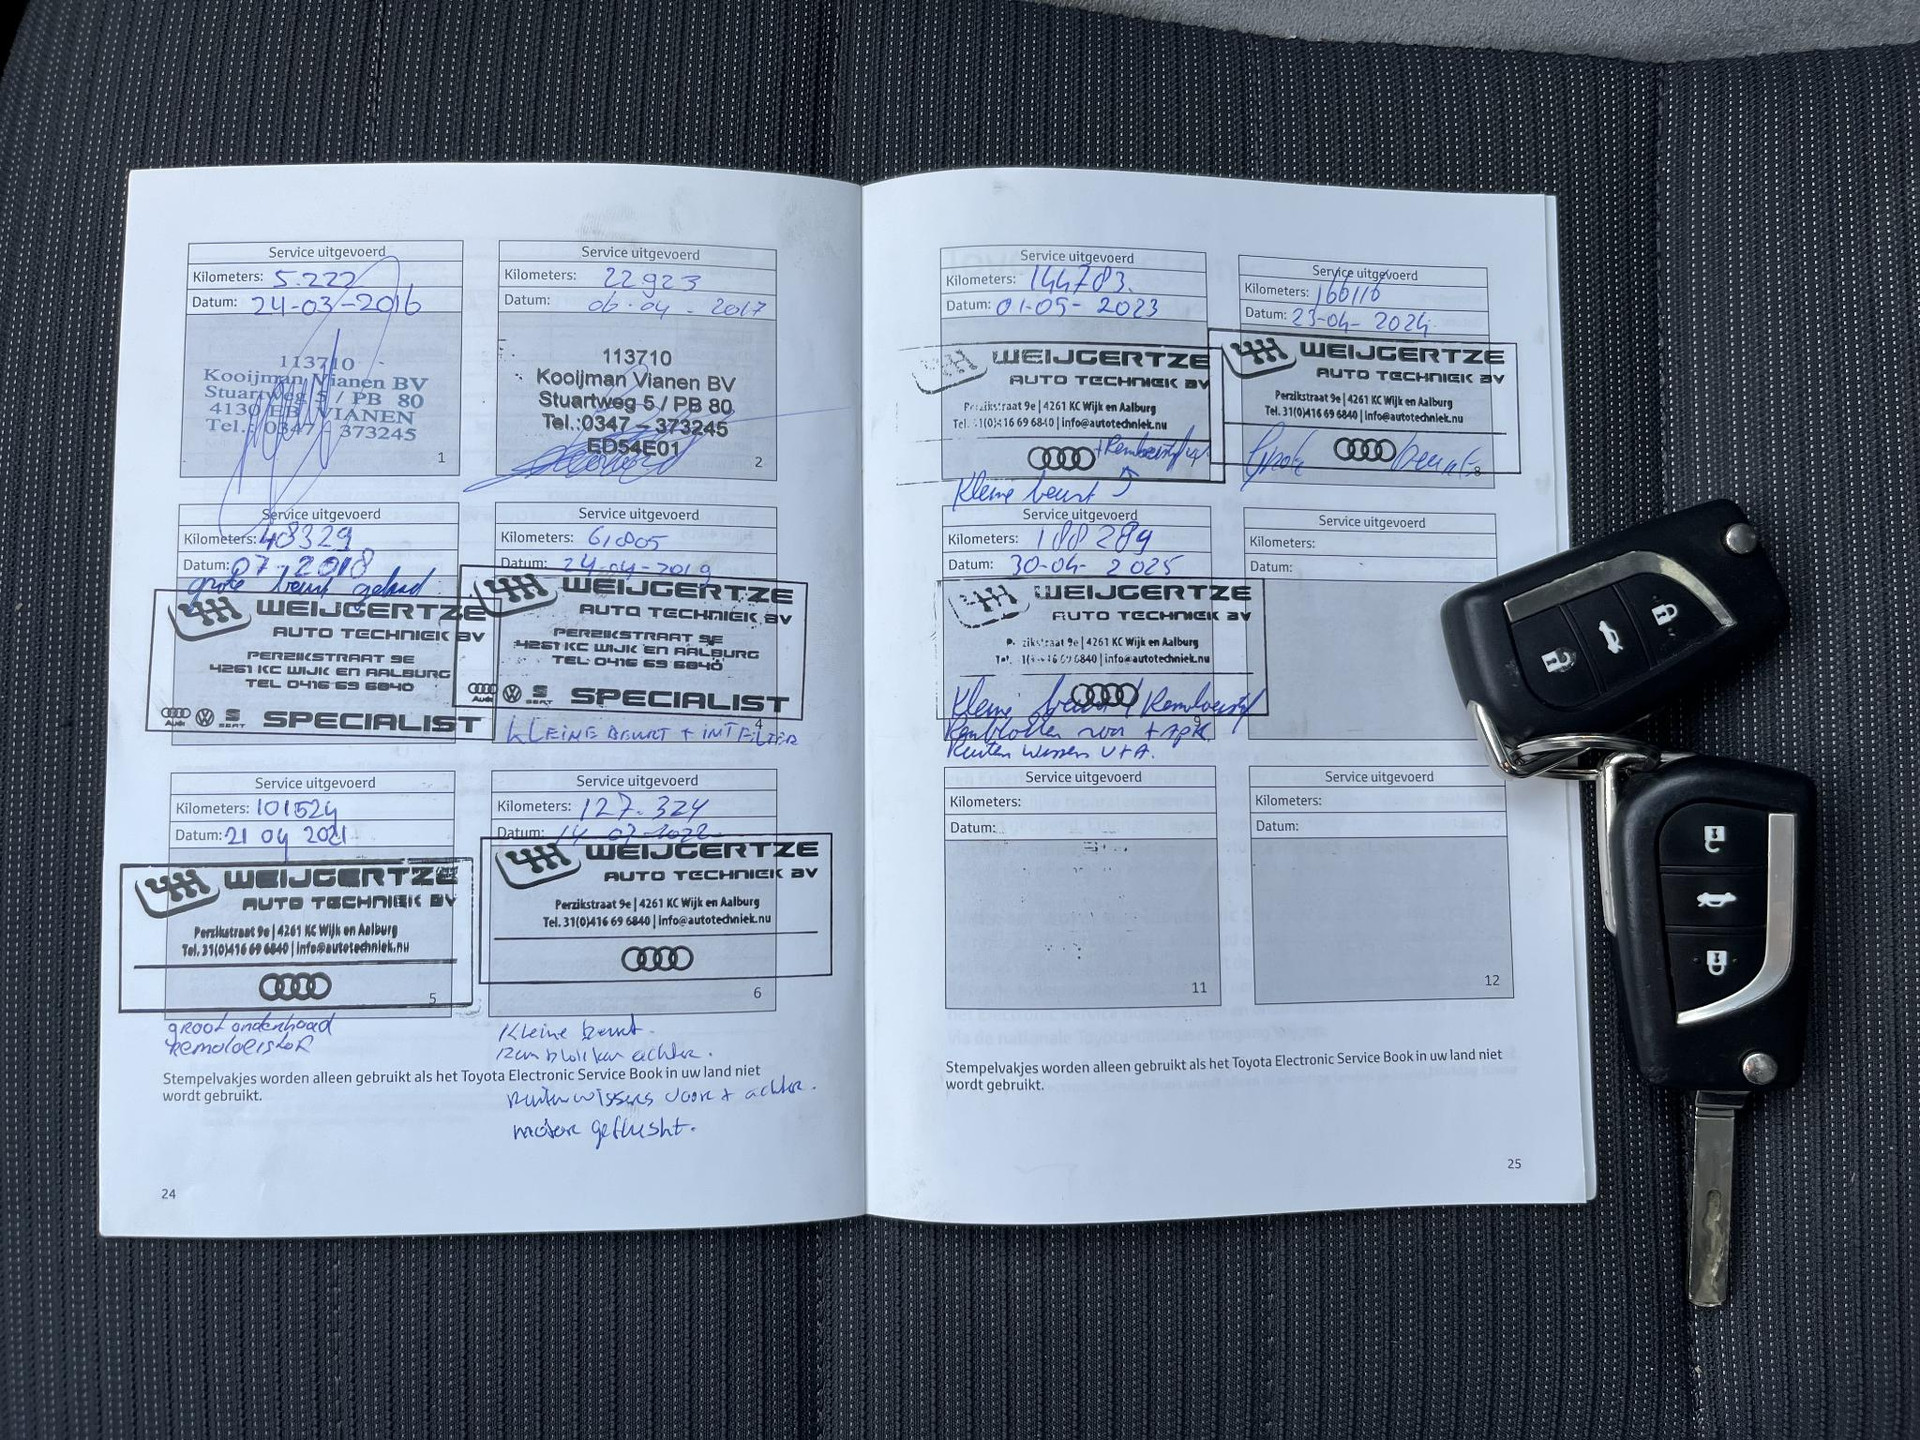 Service uitgevoerd
Kilometers: 5.222
Datum: 24-03-2016
113710
Kooijman Vianen BV
Stuartweg 5 / PB 80
4130 EB VIANEN
Tel.: 0347 - 373245
1
Service uitgevoerd
Kilometers: 22923
Datum: 06-04-2017
113710
Kooijman Vianen BV
Stuartweg 5 / PB 80
Tel.:0347 - 373245
ED54E01
2
Service uitgevoerd
Kilometers: 48329
Datum: 07-2018
grote beurt gehad
WEIJGERTZE
AUTO TECHNIEK BV
PERZIKSTRAAT 9E
4261 KC WIJK EN AALBURG
TEL 0416 69 6840
Audi SEAT SPECIALIST
Service uitgevoerd
Kilometers: 61805
Datum: 24-04-2019
WEIJGERTZE
AUTO TECHNIEK BV
PERZIKSTRAAT 9E
4261 KC WIJK EN AALBURG
TEL 0416 69 6840
Audi SEAT SPECIALIST
4
KLEINE BEURT + INT FILTER
Service uitgevoerd
Kilometers: 101524
Datum: 21 04 2021
WEIJGERTZE
AUTO TECHNIEK BV
Perzikstraat 9e | 4261 KC Wijk en Aalburg
Tel. 31(0)416 69 6840 | info@autotechniek.nu
5
groot onderhoud
Remvloeistof
Service uitgevoerd
Kilometers: 127.324
Datum: 14-07-2022
WEIJGERTZE
AUTO TECHNIEK BV
Perzikstraat 9e | 4261 KC Wijk en Aalburg
Tel. 31(0)416 69 6840 | info@autotechniek.nu
6
Kleine beurt.
Remblokken achter.
Ruitenwissers voor + achter.
motor geflusht.
Stempelvakjes worden alleen gebruikt als het Toyota Electronic Service Book in uw land niet
wordt gebruikt.
24
Service uitgevoerd
Kilometers: 144783.
Datum: 01-05-2023
WEIJGERTZE
AUTO TECHNIEK BV
Perzikstraat 9e | 4261 KC Wijk en Aalburg
Tel. 31(0)416 69 6840 | info@autotechniek.nu
Kleine beurt
Service uitgevoerd
Kilometers: 166116
Datum: 23-04-2024
WEIJGERTZE
AUTO TECHNIEK BV
Perzikstraat 9e | 4261 KC Wijk en Aalburg
Tel. 31(0)416 69 6840 | info@autotechniek.nu
Grote beurt
8
Service uitgevoerd
Kilometers: 188289
Datum: 30-04-2025
WEIJGERTZE
AUTO TECHNIEK BV
Perzikstraat 9e | 4261 KC Wijk en Aalburg
Tel. 31(0)416 69 6840 | info@autotechniek.nu
9
Kleine beurt / Remvloeistof
Remblokken voor + apk
Ruiten wissers V+A.
Service uitgevoerd
Kilometers:
Datum:
Service uitgevoerd
Kilometers:
Datum:
11
Service uitgevoerd
Kilometers:
Datum:
12
Stempelvakjes worden alleen gebruikt als het Toyota Electronic Service Book in uw land niet
wordt gebruikt.
25